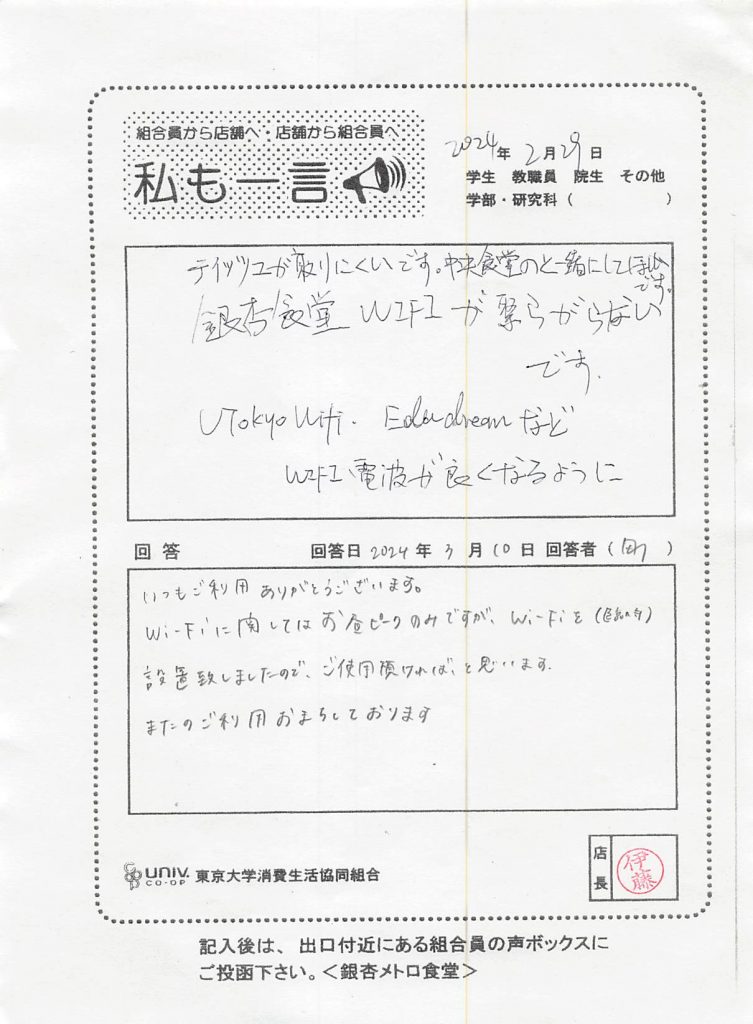 組合員から店舗へ・店舗から組合員へ
私も一言
2024年 2月29日
学生 教職員 院生 その他
学部・研究科( )
テイッシュが取りにくいです。中央食堂のと一緒にしてほしい
です。
銀杏食堂 WIFIが繋らがらない
です.
UTokyo Wifi. Eduroamなど
WIFI電波が良くなるように
回答 回答日 2024年 3月10日 回答者( )
いつもご利用ありがとうございます。
Wi-Fiに関してはお昼ピークのみですが、Wi-Fiを(臨時)
設置致しましたので、ご使用頂ければ、と思います.
またのご利用おまちしております
店長
伊藤
UNIV.
CO-OP
東京大学消費生活協同組合
記入後は、出口付近にある組合員の声ボックスに
ご投函下さい。<銀杏メトロ食堂>